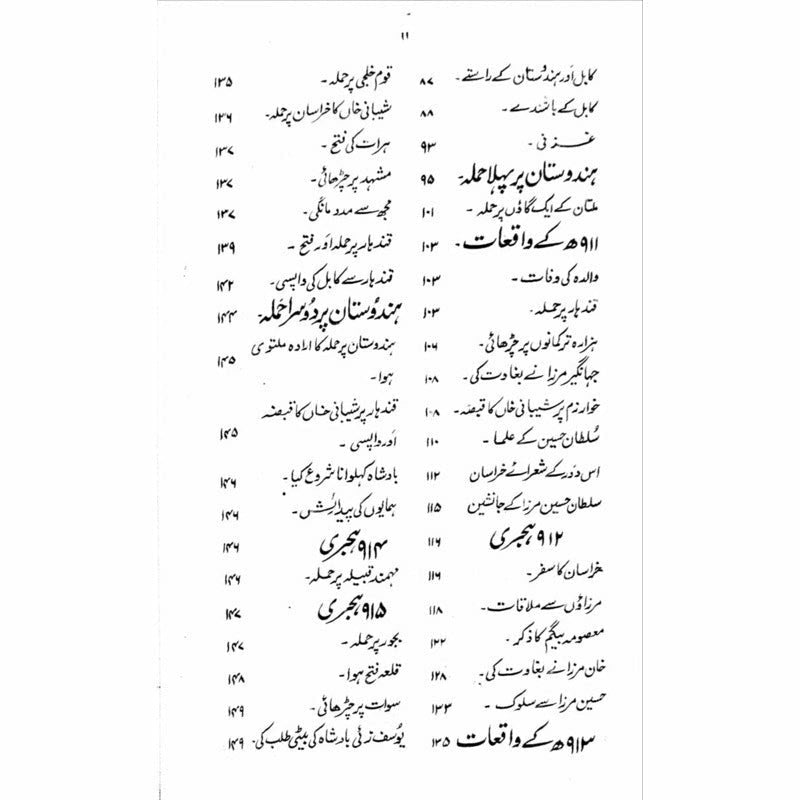 ۱۱
کابل اور ہندوستان کے راستے۔ ۸۷
کابل کے باشندے۔ ۸۸
غزنی۔ ۹۳
ہندوستان پر پہلا حملہ۔ ۹۵
ملتان کے ایک گاؤں پر حملہ۔ ۱۰۱
۹۱۱ھ کے واقعات۔ ۱۰۳
والدہ کی وفات۔ ۱۰۳
قندہار پر حملہ۔ ۱۰۳
ہزارہ ترکمانوں پر چڑھائی۔ ۱۰۶
جہانگیر مرزا نے بغاوت کی۔ ۱۰۸
خوارزم پر شیبانی خاں کا قبضہ۔ ۱۰۸
سُلطان حسین کے علما۔ ۱۱۰
اس دور کے شعرائے خراسان ۱۱۲
سلطان حسین مرزا کے جانشین ۱۱۵
۹۱۲ ہجری ۱۱۶
خراسان کا سفر۔ ۱۱۶
مرزاؤں سے ملاقات۔ ۱۱۸
معصومہ بیگم کا ذکر۔ ۱۲۲
خان مرزا نے بغاوت کی۔ ۱۲۸
حسین مرزا سے سلوک۔ ۱۳۳
۹۱۳ھ کے واقعات ۱۳۵
قوم خلجی پر حملہ۔ ۱۳۵
شیبانی خاں کا خراسان پر حملہ۔ ۱۳۶
ہرات کی فتح۔ ۱۳۷
مشہد پر چڑھائی۔ ۱۳۷
مجھ سے مدد مانگی۔ ۱۳۷
قندہار پر حملہ اور فتح۔ ۱۳۹
قندہار سے کابل کی واپسی۔ ۱۴۲
ہندُوستان پر دُوسرا حملہ۔ ۱۴۴
ہندوستان پر حملہ کا ارادہ ملتوی
ہوا۔ ۱۴۵
قندہار پر شیبانی خاں کا قبضہ
اور واپسی۔ ۱۴۵
بادشاہ کہلوانا شروع کیا۔ ۱۴۶
ہمایوں کی پیدائش۔ ۱۴۶
۹۱۴ ہجری ۱۴۶
مہمند قبیلہ پر حملہ۔ ۱۴۶
۹۱۵ ہجری ۱۴۷
بجور پر حملہ۔ ۱۴۷
قلعہ فتح ہوا۔ ۱۴۸
سوات پر چڑھائی۔ ۱۴۹
یُوسف زئی بادشاہ کی بیٹی طلب کی۔ ۱۴۹